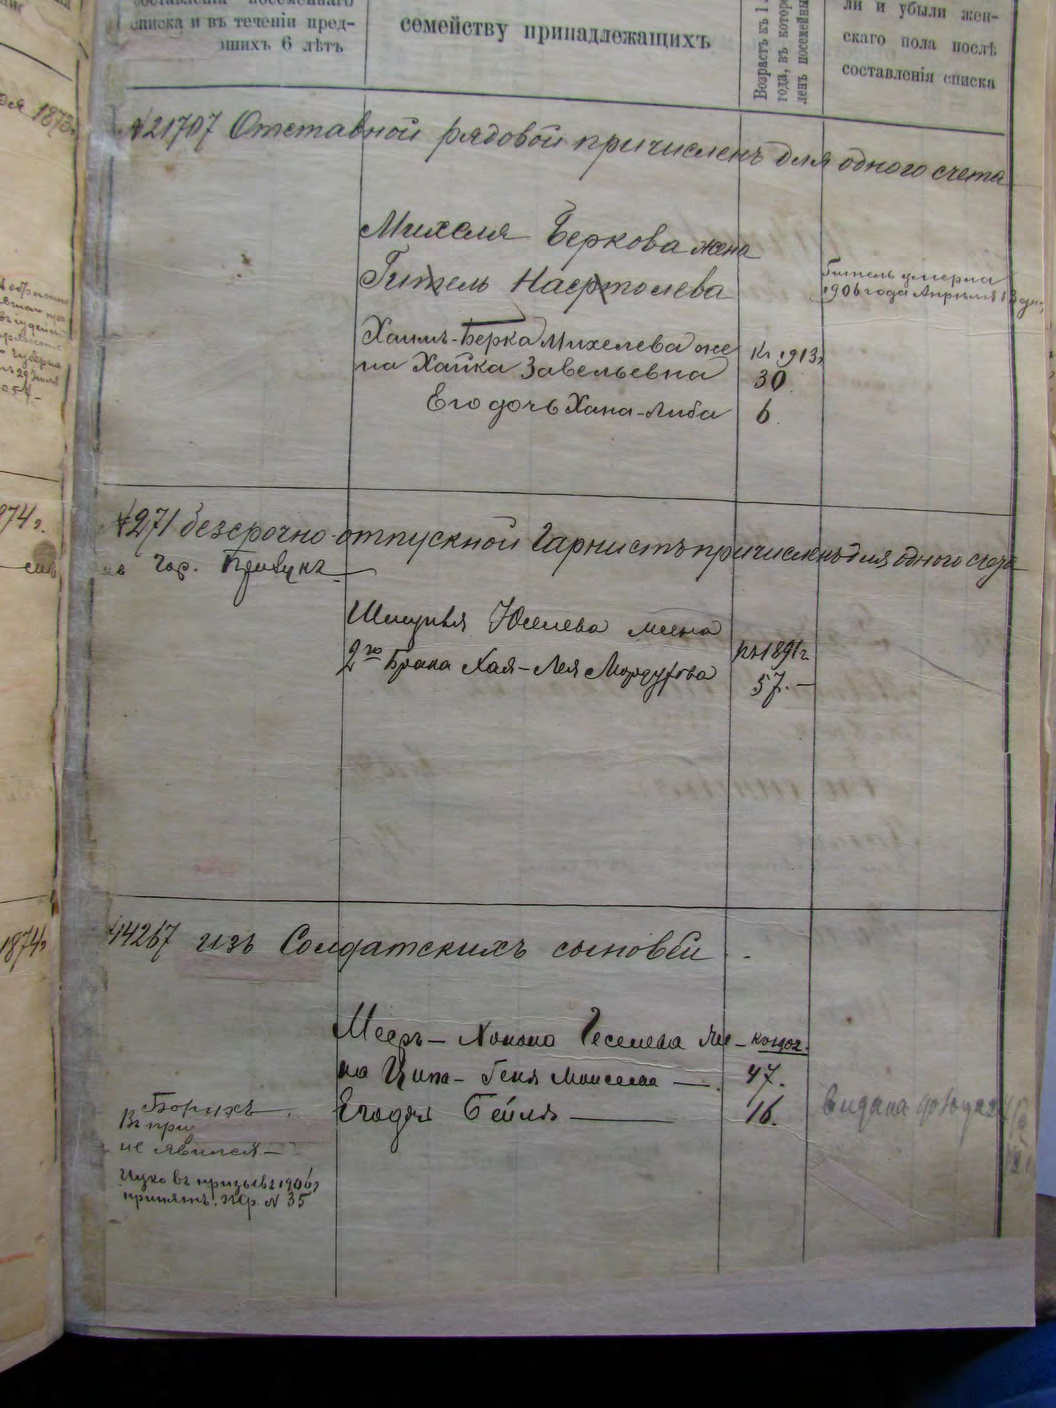 составленія посемейнаго
списка и въ теченіи пред-
шихъ 6 лѣтъ
семейству принадлежащихъ
Возрастъ къ 1
года, въ котор
ленъ посемейны
ли и убыли жен-
скаго пола послѣ
составленія списка
1875
№ 21707 Отставной рядовой причисленъ для одного счета
Михеля Беркова жена
Гитель Наертолева
Гитель умерла
1906 года Апрѣля 13 дня
Хаимъ-Берка Михелева же
на Хайка Завельевна
Къ 1913 г
30.
Его дочь Хана-Либа
6.
974 г.
№ 271 безсрочно-отпускной Гарнистъ причисленъ для одного счета
Гор.
Юселева жена
2го Брака Хая-Лея Мордухова
къ 1891 г.
57.-
1874 г
14267 изъ Солдатскихъ сыновей
Мееръ-Хонона Геселева же-
на Ципа-Геня Моисеева
47.
Его дочь Бейля
16.
видана
Борихъ
Въ при
не явился-
Ицко въ призывъ 1906 г
принятъ. жер. № 35